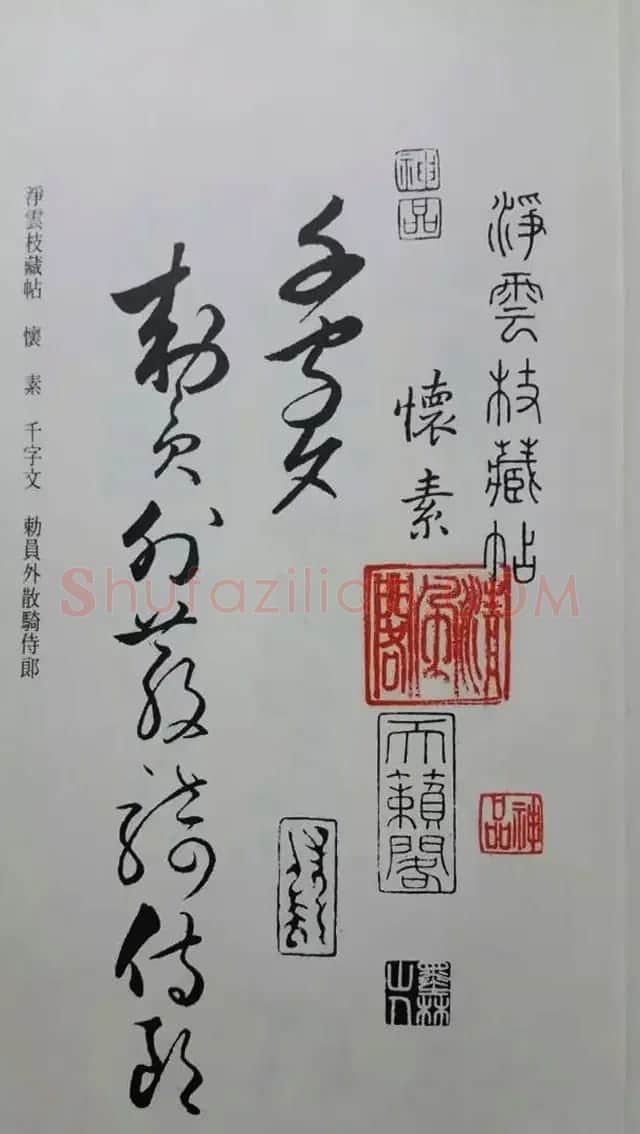 淨雲枝藏帖
神品
懷素
清風閣
天籟閣
神品
墨林山人
千字文
勅員外散騎侍郎
淨雲枝藏帖 懷素 千字文 勅員外散騎侍郎
Shufaziliao.COM